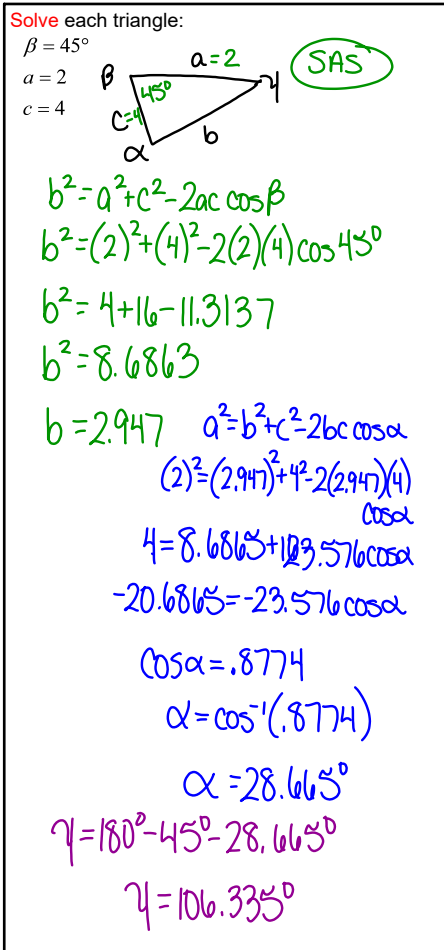 Solve each triangle:
β = 45°
a = 2
c = 4
a=2
SAS
β
45°
γ
c=4
b
α
b²=a²+c²-2ac cosβ
b²=(2)²+(4)²-2(2)(4)cos45°
b²=4+16-11.3137
b²=8.6863
b=2.947
a²=b²+c²-2bc cosα
(2)²=(2.947)²+4²-2(2.947)(4)
cosα
4=8.6865+23.576cosα
-20.6865=-23.576cosα
cosα=.8774
α=cos⁻¹(.8774)
α=28.665°
γ=180°-45°-28.665°
γ=106.335°